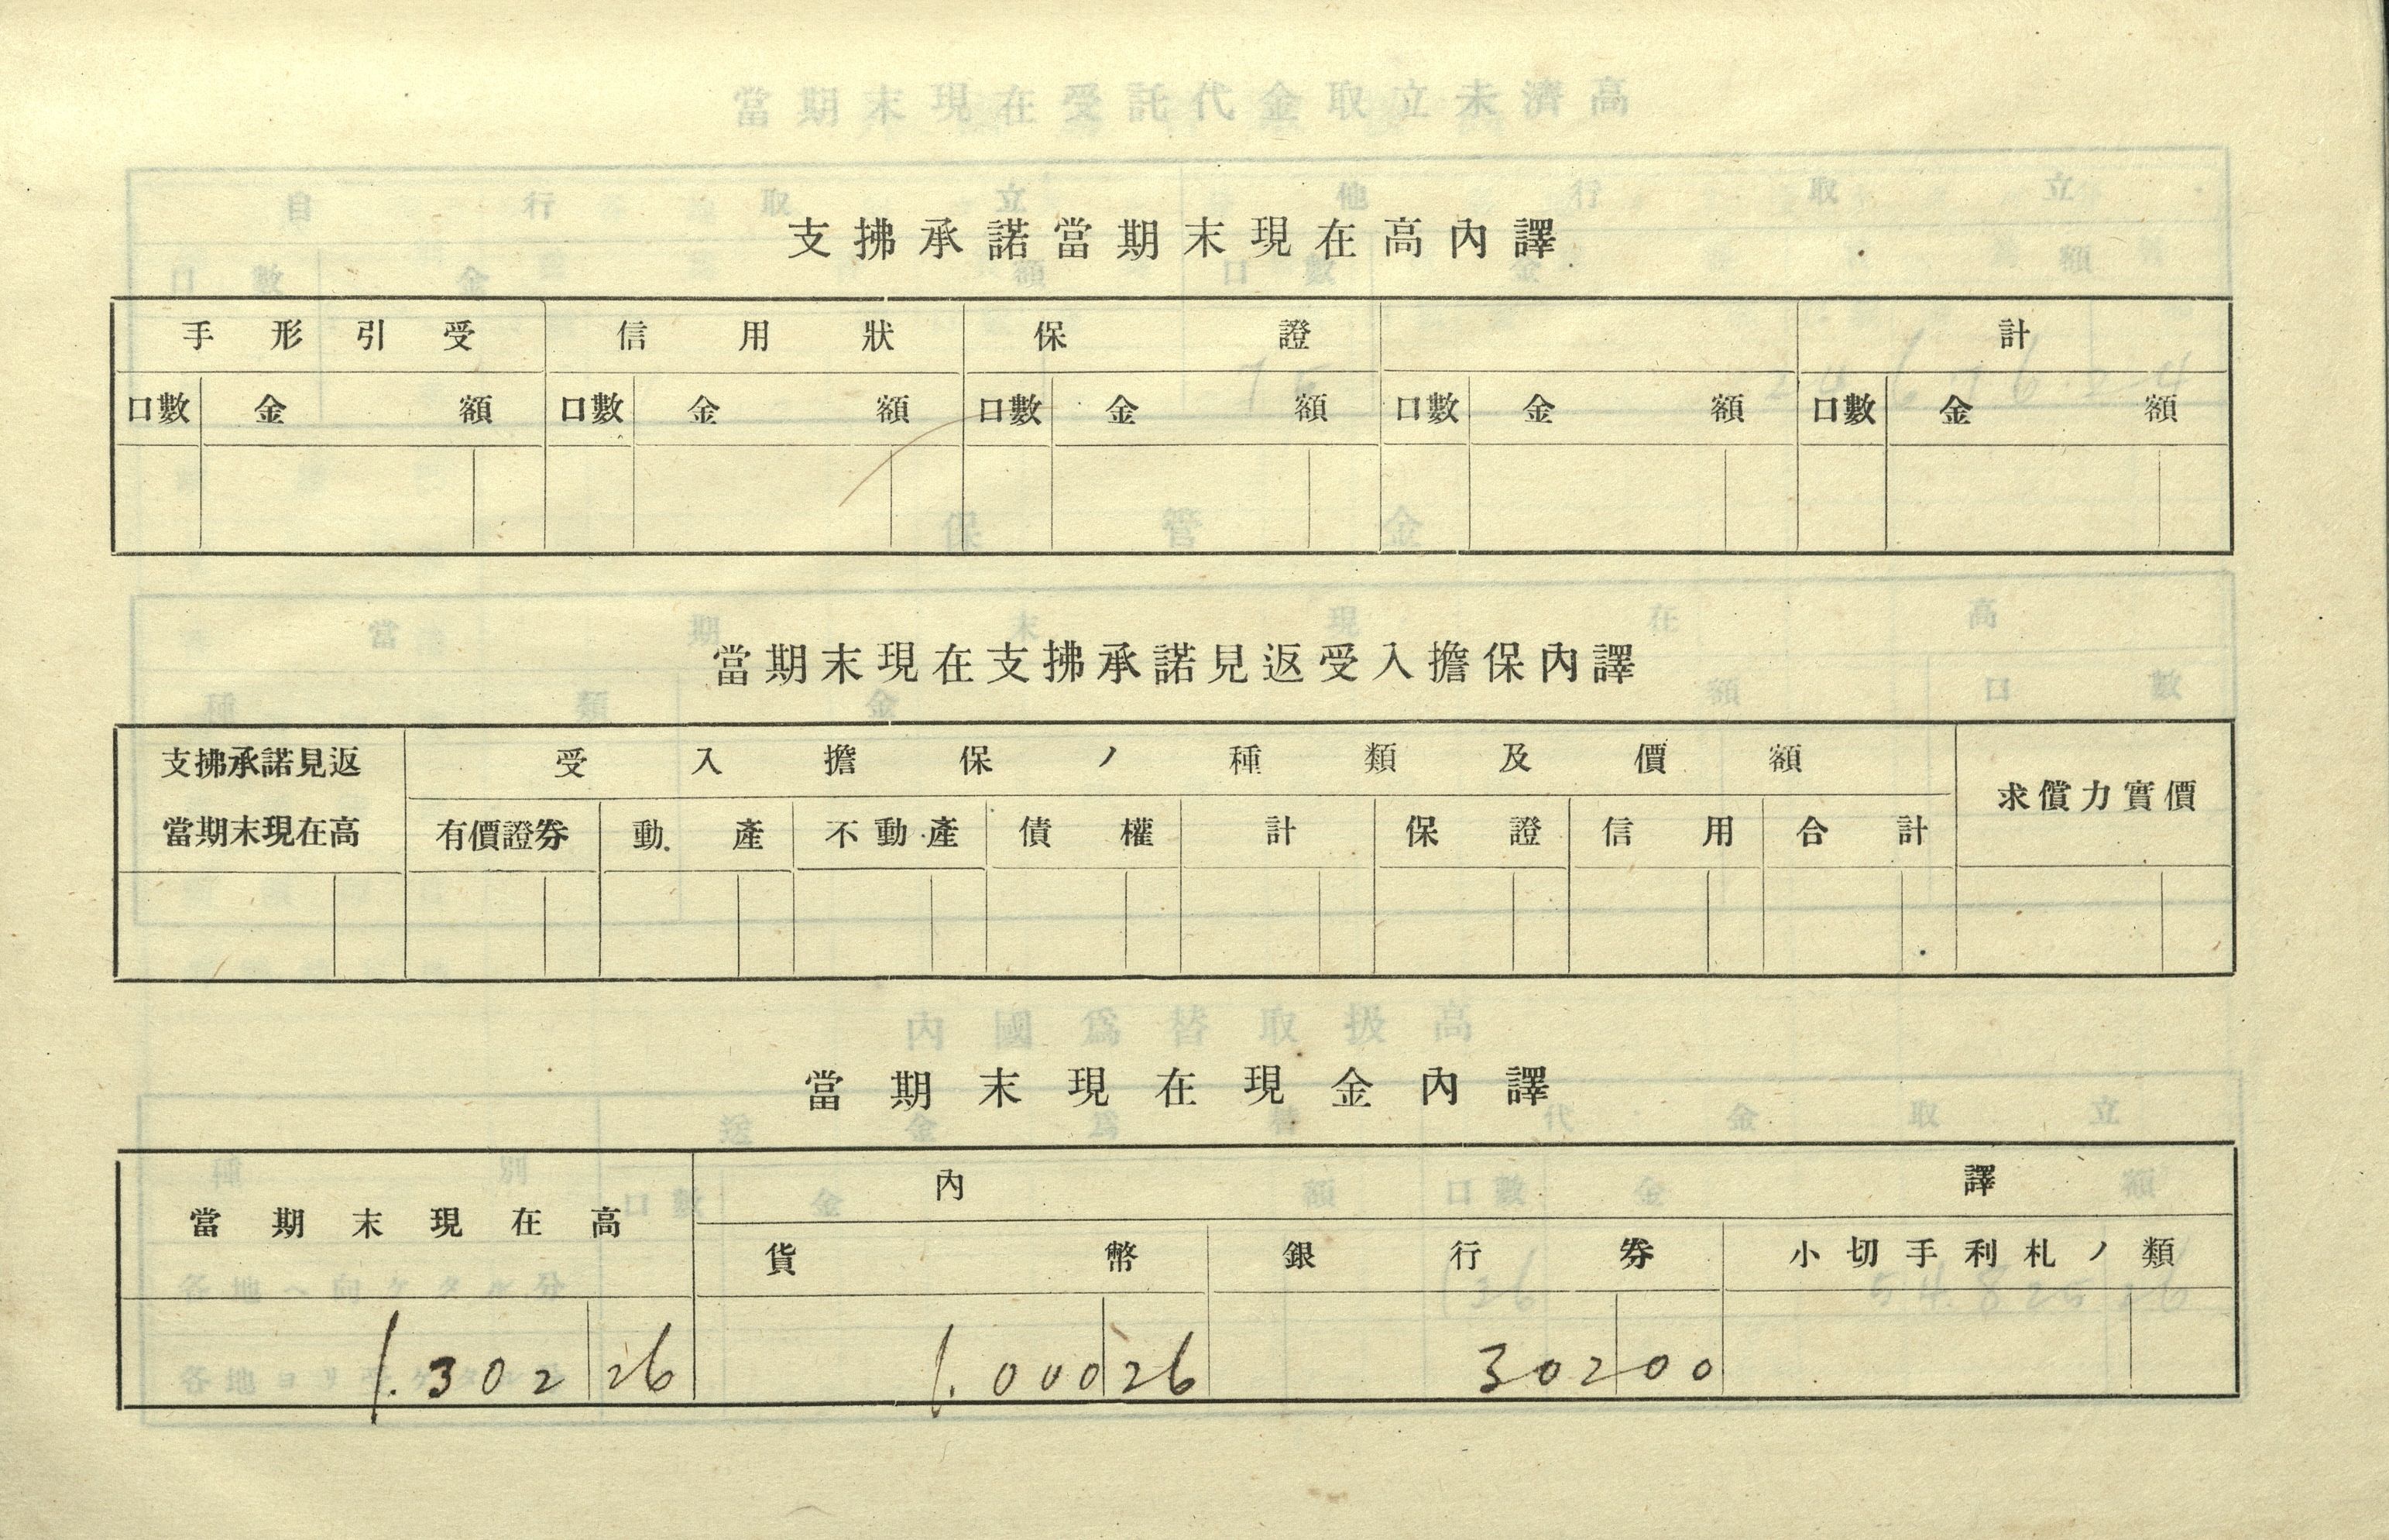 支拂承諾當期末現在高內譯
手形引受 信用狀 保證 計
口數 金額 口數 金額 口數 金額 口數 金額 口數 金額
當期末現在支拂承諾見返受入擔保內譯
支拂承諾見返 受入擔保ノ種類及價額 求償力實價
當期末現在高 有價證券 動產 不動產 債權 計 保證 信用 合計
當期末現在現金內譯
當期末現在高 內譯
貨幣 銀行券 小切手利札ノ類
1.302 26 1.000 26 302 00